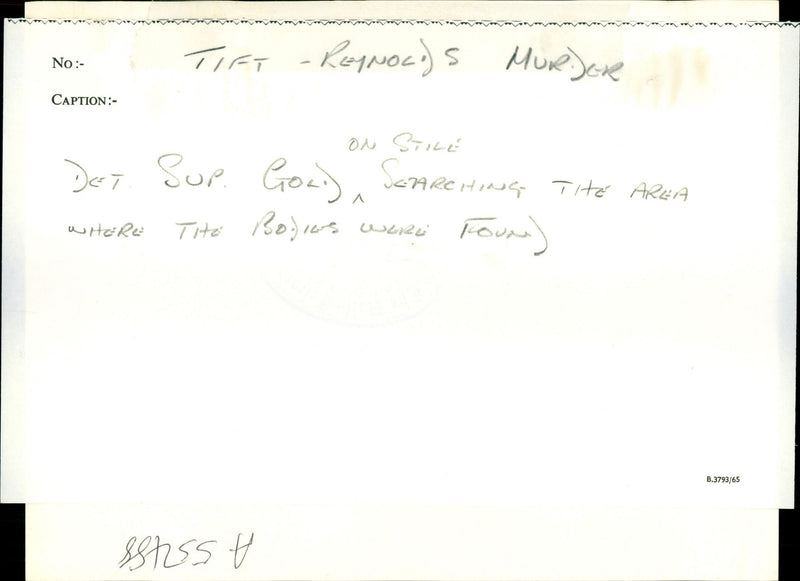 No:- TIFT - REYNOLDS MURDER
CAPTION:-
ON STILE
DET. SUP. GOLD ^ SEARCHING THE AREA
WHERE THE BODIES WERE FOUND
B.3793/65